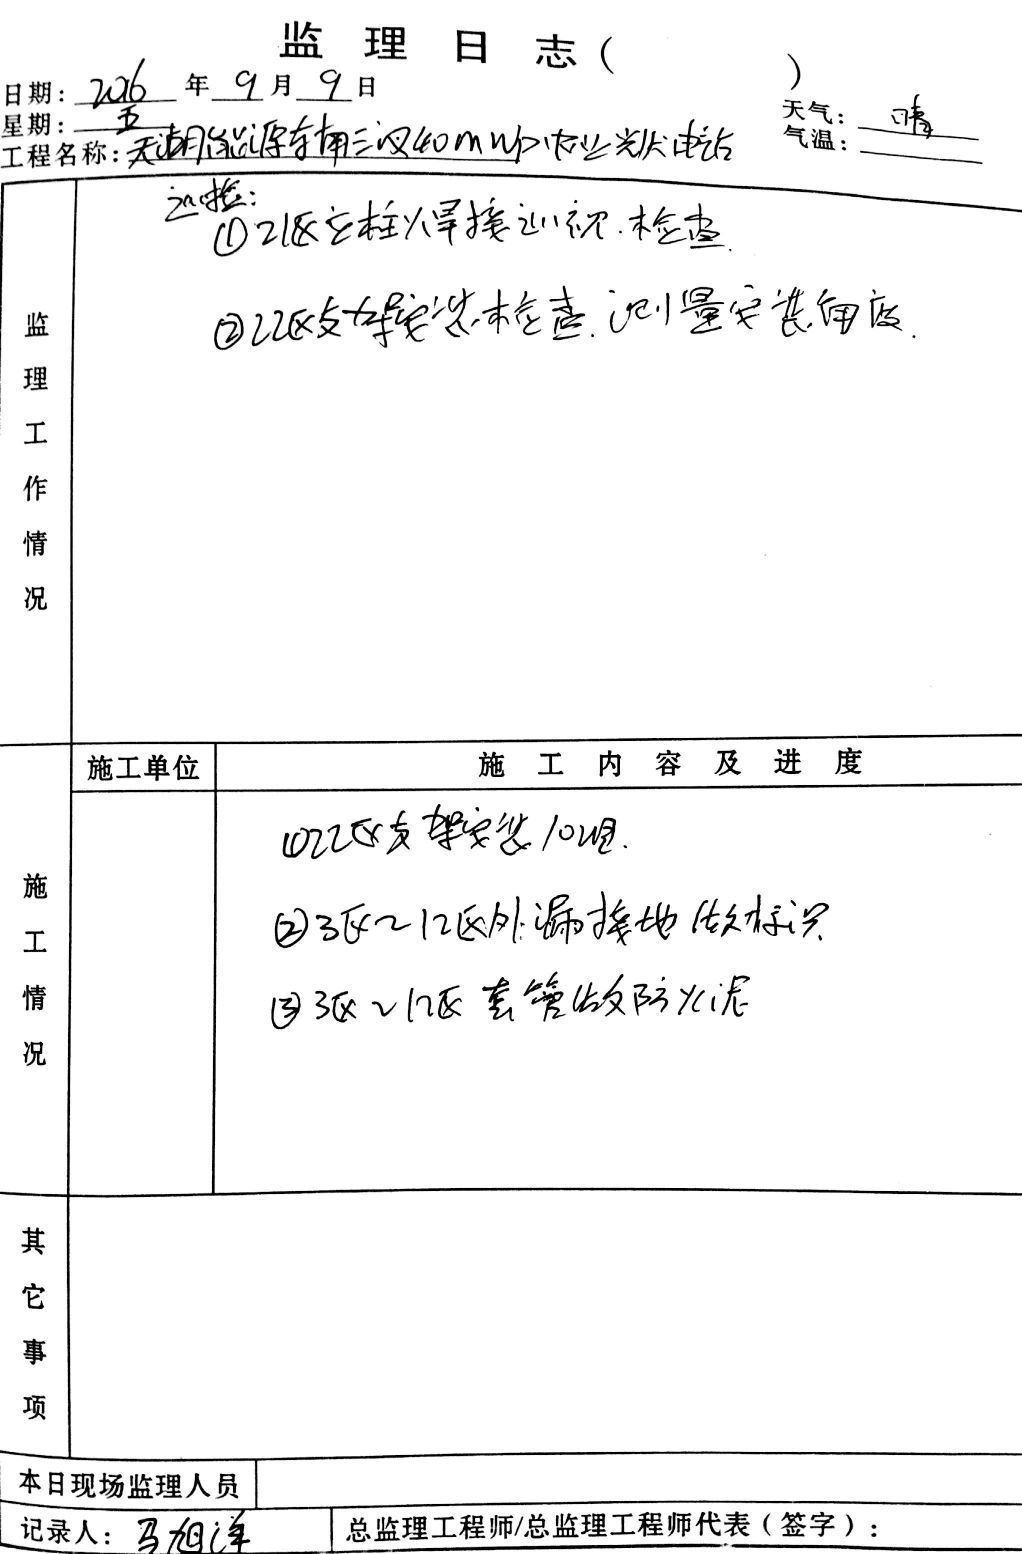 监理日志（ ）
日期：2016年9月9日
星期：五
天气：晴
气温：
工程名称：天湖能源东南三汊40MWp农业光伏电站
巡检：
①21区立柱焊接巡视.检查.
②22区支架安装检查.测量安装角度.
监理工作情况
施工单位
施工内容及进度
施工情况
①22区支架安装10组.
②3区~12区外漏接地做标识
③3区~12区套管做防火泥
其它事项
本日现场监理人员
记录人：马旭洋
总监理工程师/总监理工程师代表（签字）：